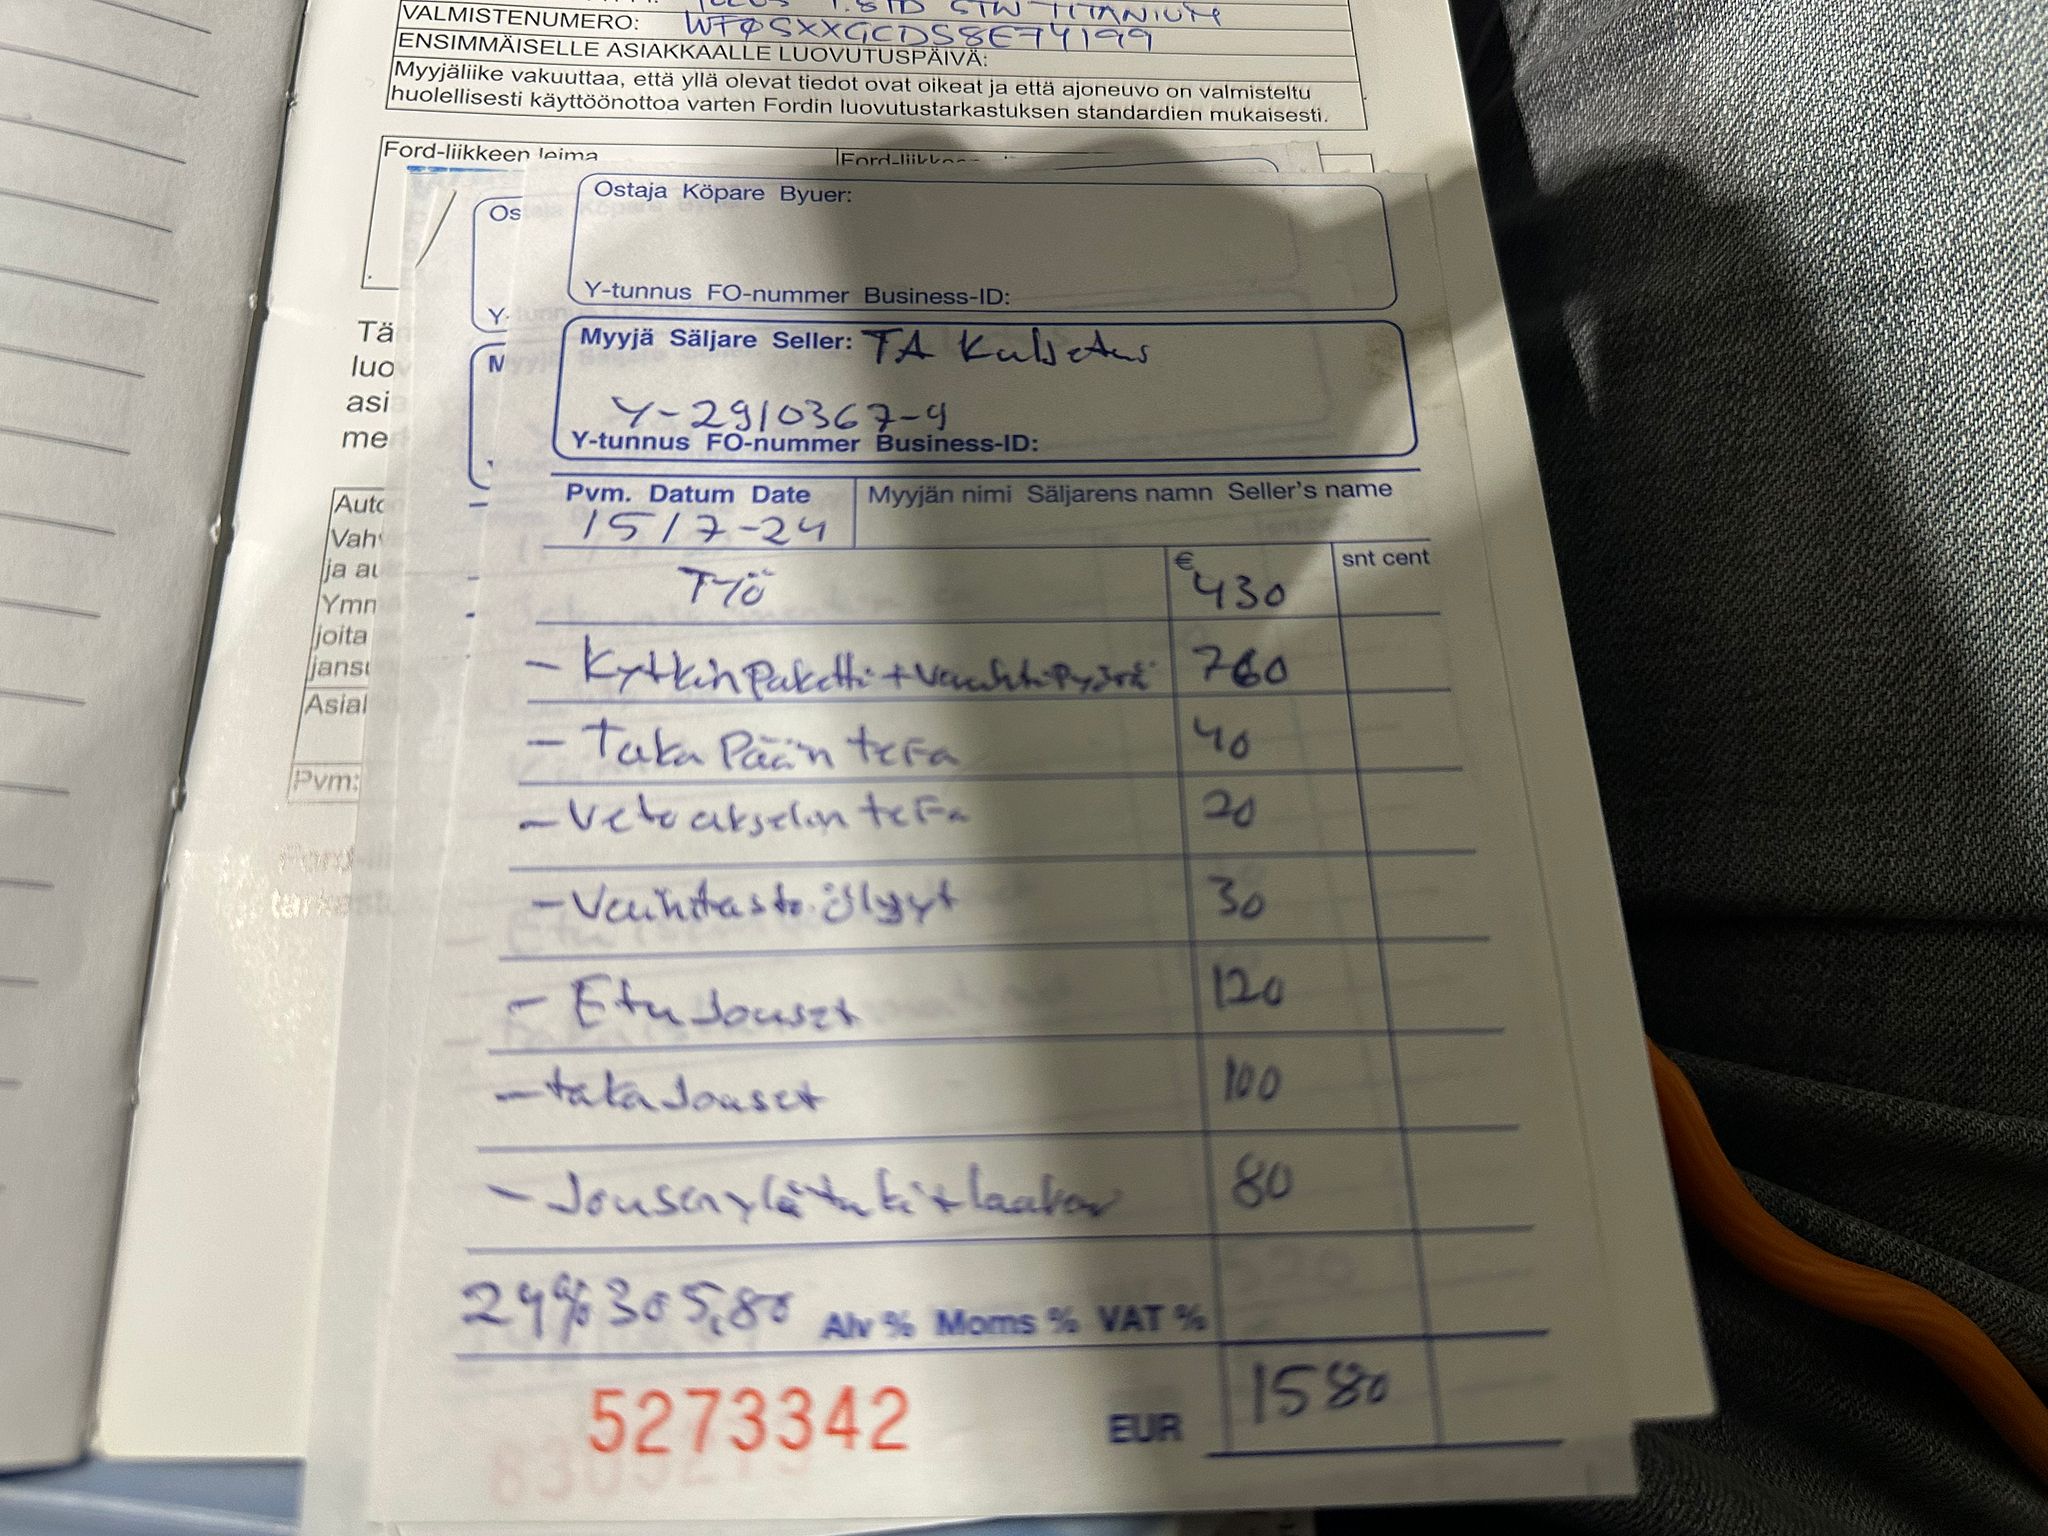 1.8TD STW TITANIUM
VALMISTENUMERO: WFØSXXGCDS8E74199
ENSIMMÄISELLE ASIAKKAALLE LUOVUTUSPÄIVÄ:
Myyjäliike vakuuttaa, että yllä olevat tiedot ovat oikeat ja että ajoneuvo on valmisteltu
huolellisesti käyttöönottoa varten Fordin luovutustarkastuksen standardien mukaisesti.
Ford-liikkeen leima
Ostaja Köpare Byuer:
Y-tunnus FO-nummer Business-ID:
Myyjä Säljare Seller: TA Kuljetus
Y-2910367-9
Y-tunnus FO-nummer Business-ID:
Pvm. Datum Date Myyjän nimi Säljarens namn Seller's name
15/7-24
€ snt cent
TYÖ 430
- Kytkin Paketti + Vauhtipyörä 760
- Taka Pään teFa 40
- Veto akselin teFa 20
- Vaihdasto öljyyt 30
- Etu Jouset 120
- taka Jouset 100
- Jousen ylä tuki + laakar 80
24% 305,80 Alv % Moms % VAT %
5273342 EUR 1580
Os
Y-
M
Tä
luo
asi
me
Auto
Vah
ja au
Ymn
joita
jansu
Asial
Pvm: